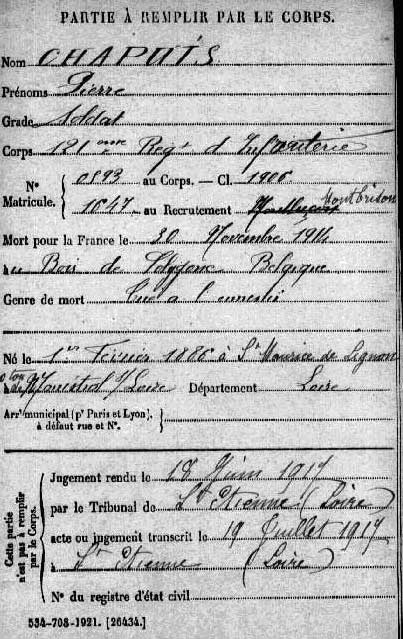 PARTIE À REMPLIR PAR LE CORPS.
Nom CHAPUIS
Prénoms Pierre
Grade Soldat
Corps 121ème Regt d'Infanterie
N° Matricule. { 0893 au Corps. — Cl. 1906
1647 au Recrutement Montluçon Montbrison
Mort pour la France le 30 Novembre 1914
au Bois de Polygone Belgique
Genre de mort Tué à l'ennemi
Né le 1er Février 1886 à St Maurice de Lignon
con de Monistrol s/Loire Département Loire
Arrt municipal (pr Paris et Lyon),
à défaut rue et N°.
Cette partie n'est pas à remplir par le Corps.
Jugement rendu le 18 Juin 1917
par le Tribunal de St Etienne (Loire)
acte ou jugement transcrit le 19 Juillet 1917
à St Etienne (Loire)
N° du registre d'état civil
534-708-1921. [26434.]